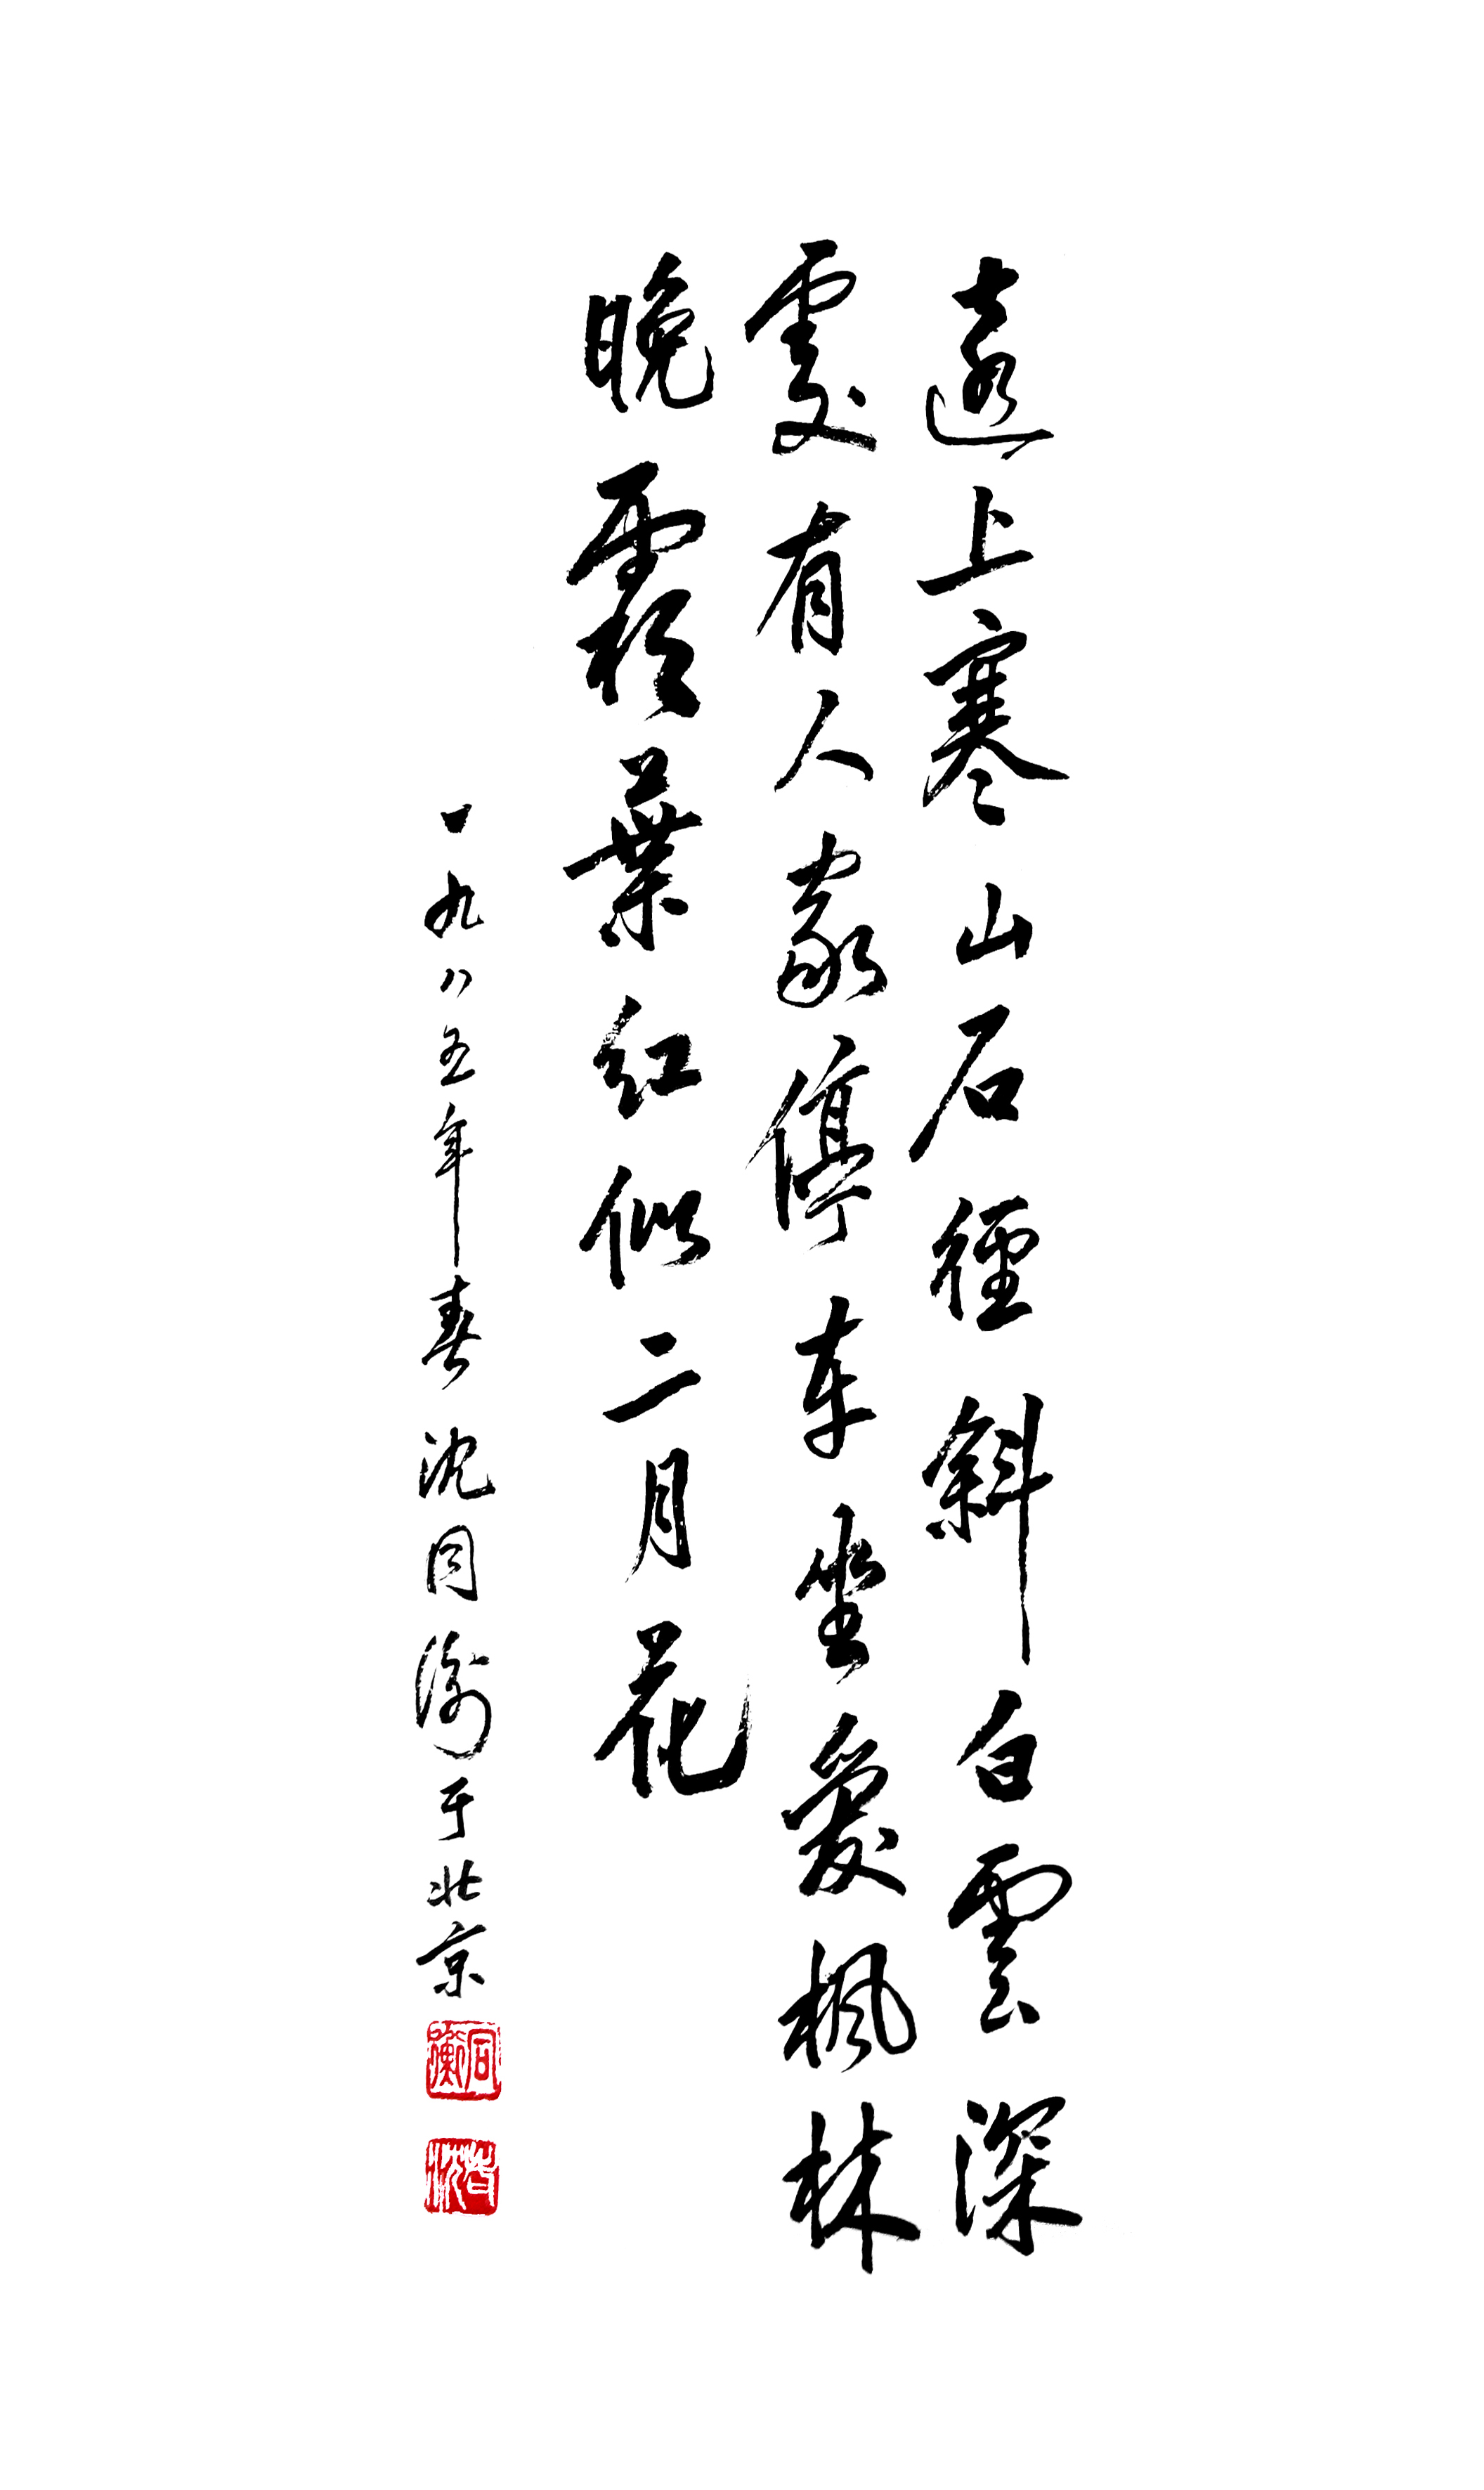 遠上寒山石徑斜白雲深
處有人家停车坐愛枫林
晚霜葉红似二月花
一九八五年春沈同衡于北京
同衡